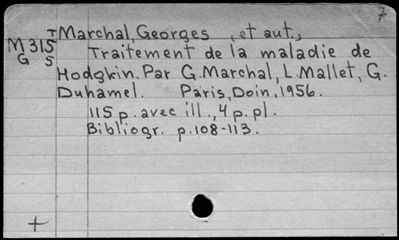 7
T Marchal, Georges , et aut.,
M315 Traitement de la maladie de
G 5 Hodgkin. Par G. Marchal, L. Mallet, G.
Duhamel. Paris, Doin, 1956.
115 p. avec ill., 4 p. pl.
Bibliogr. p. 108-113.
+